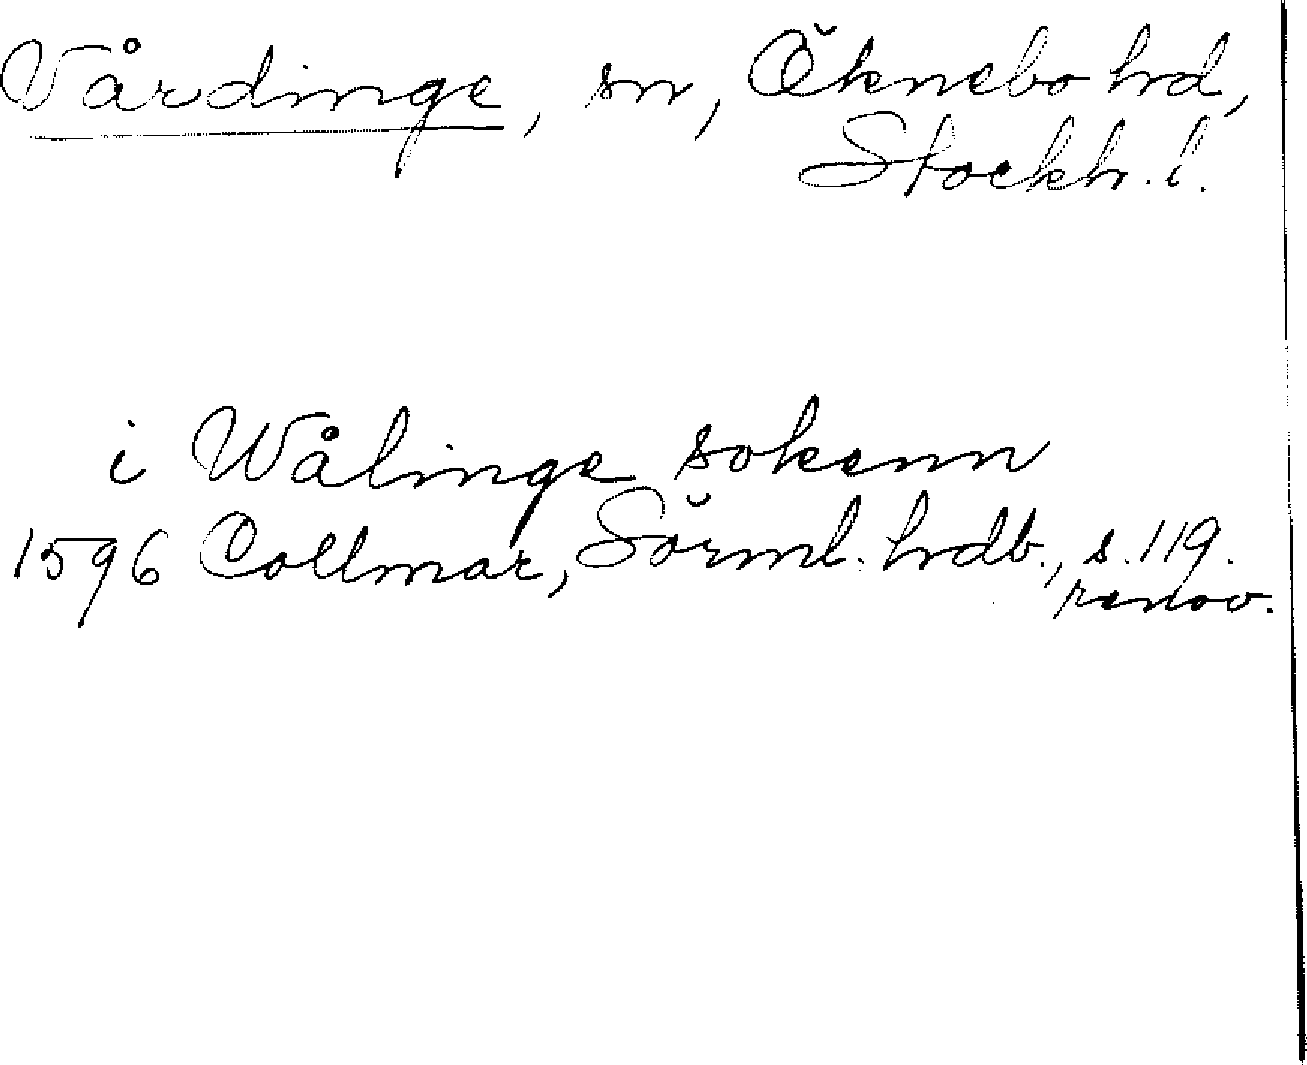 Vårdinge, sn, Öknebo hd,
Stockh. l.
i Wålinge sokenn
1596 Collmar, Sörml. hdb., s. 119.
renov.